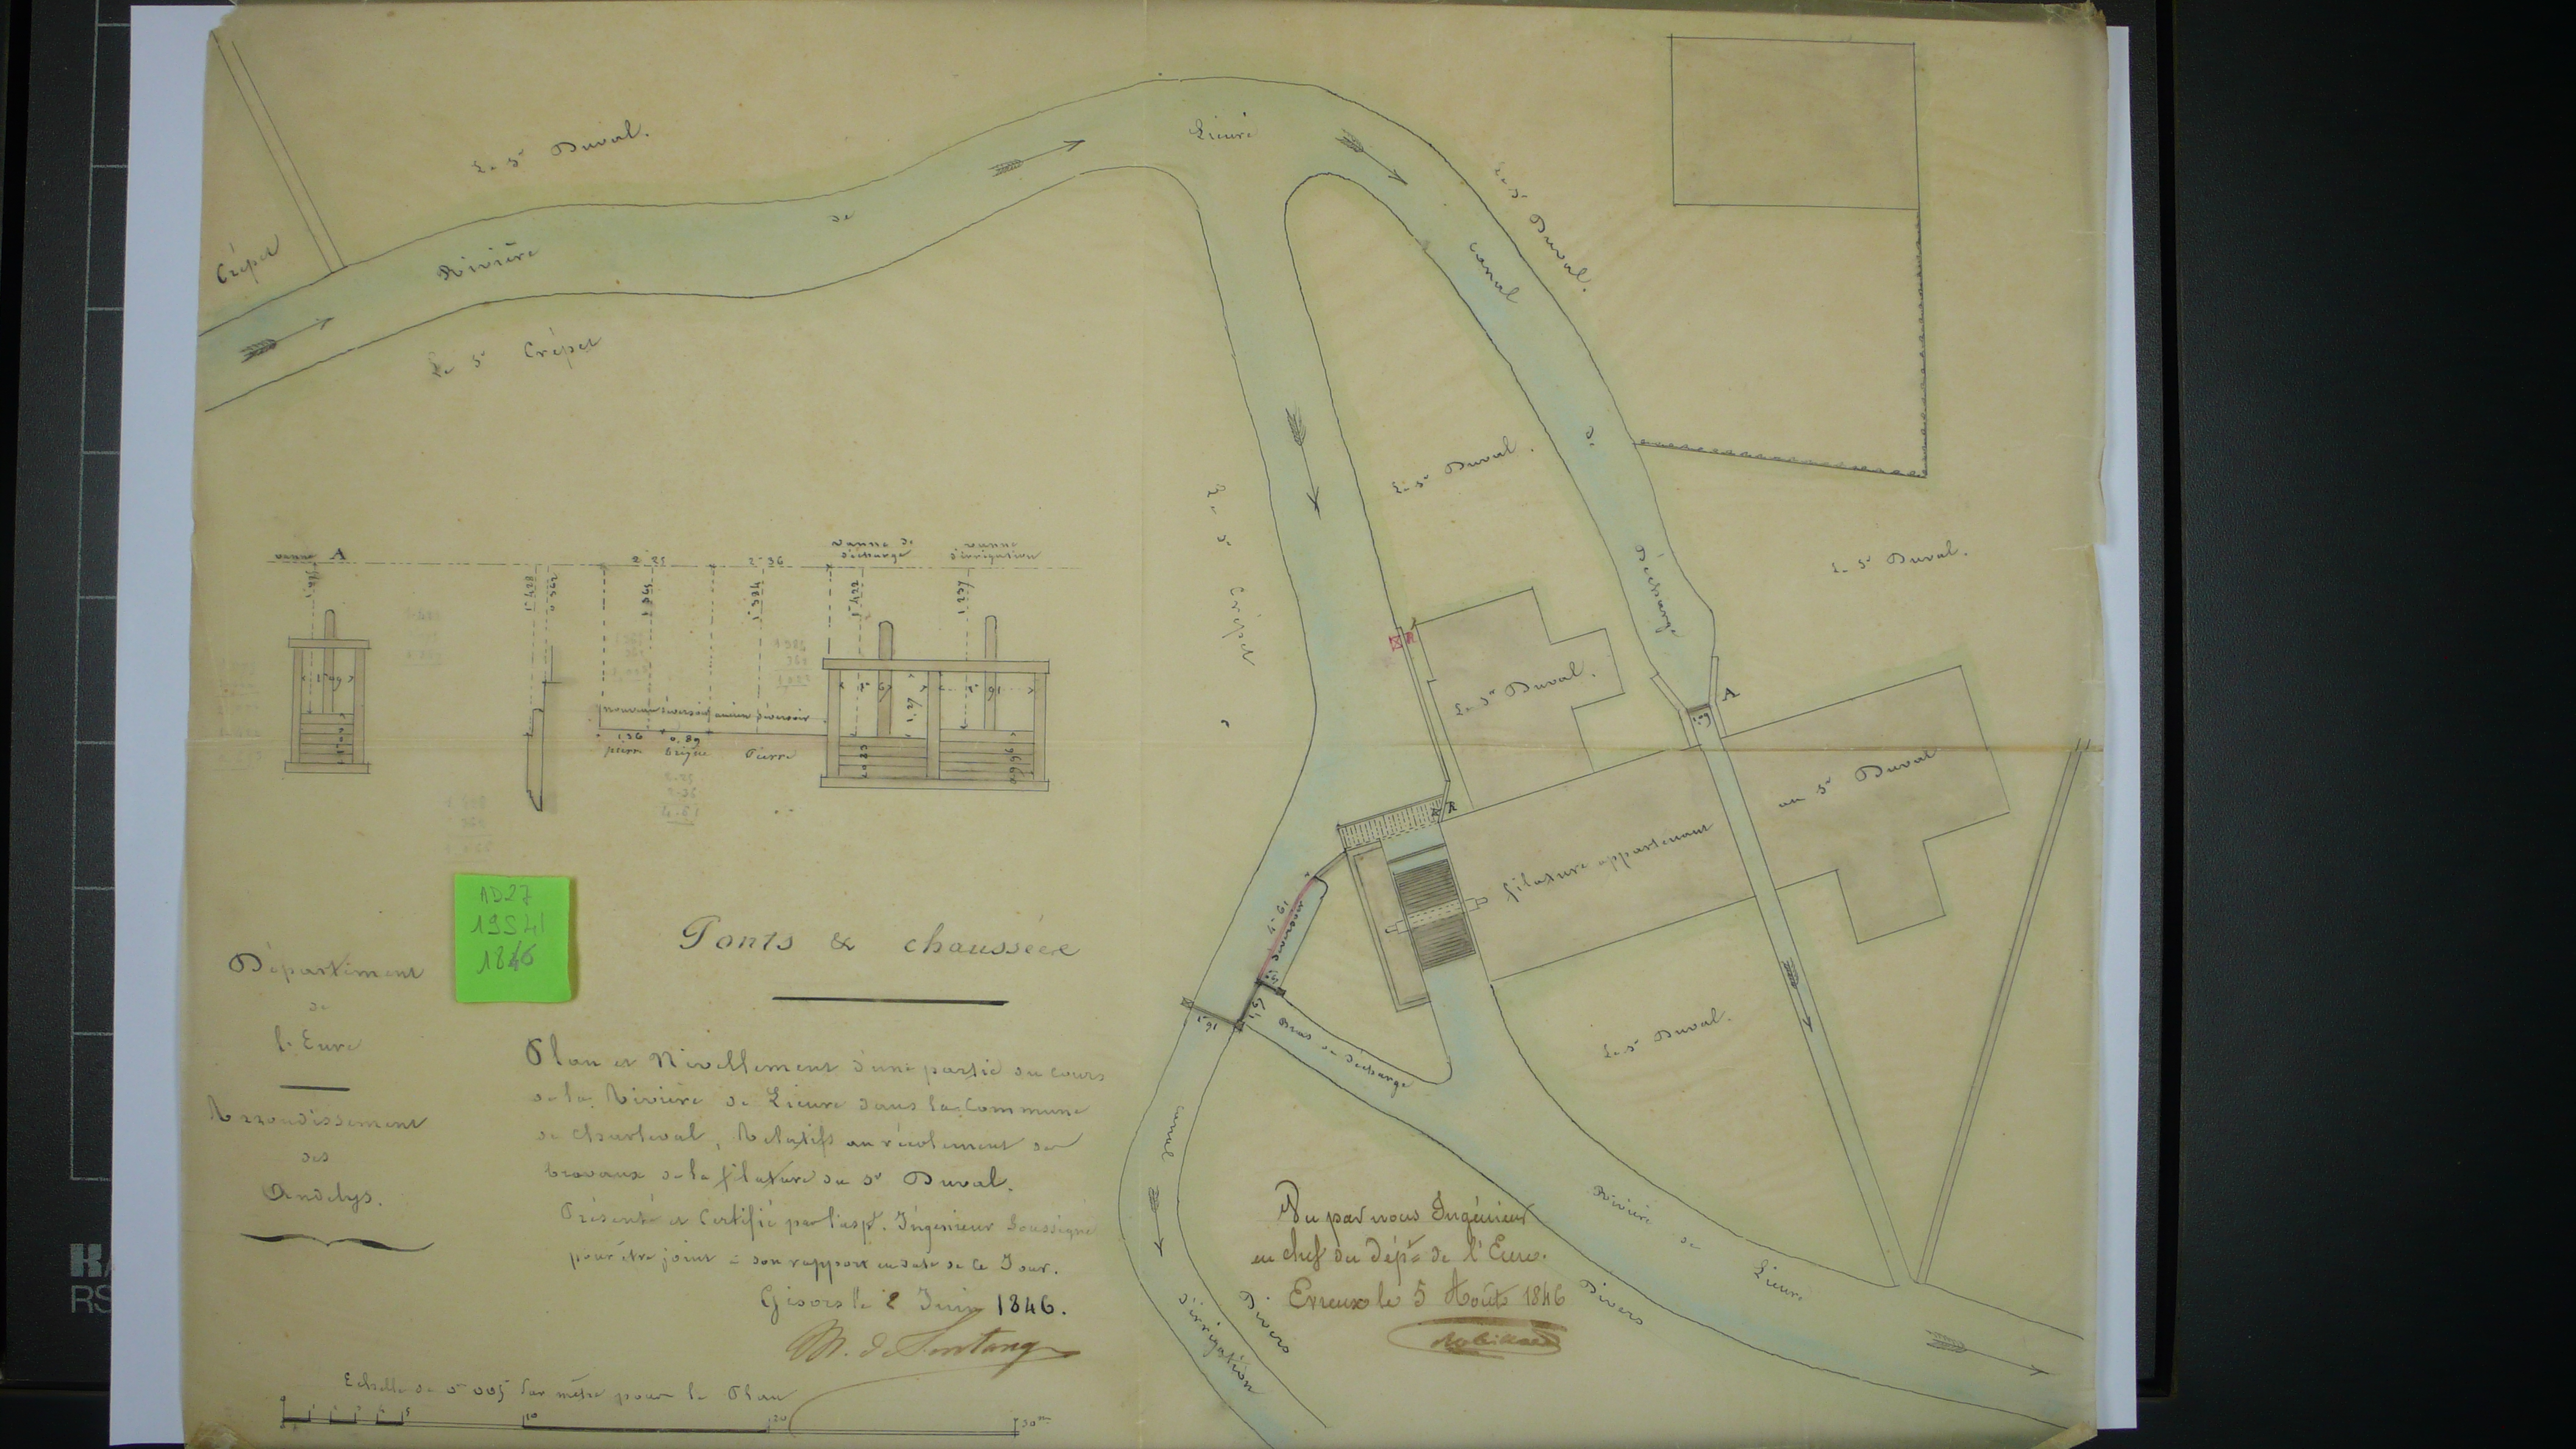 Le Sr Duval.
Crépet
Rivière
de
Lieure
Le Sr Crépet
Le Sr Duval.
canal
de
décharge
Le Sr Duval.
Le Sr Duval.
Le Sr Crépet
vanne A
2m 25
2m 36
vanne de
décharge
vanne
d'irrigation
nouveau déversoir
ancien déversoir
1,36
0,89
pierre
brique
Pierre
R
Le Sr Duval.
A
R
filature appartenant
au Sr Duval
déversoir
Bras de décharge
Le Sr Duval.
AD27
19S41
1846
Ponts & chaussées
Département
de
l'Eure
Arrondissement
des
Andelys.
Plan et Nivellement d'une partie du cours
de la Rivière de Lieure dans la Commune
de Charleval, Relatifs au récolement des
travaux de la filature du Sr Duval.
Présenté et Certifié par l'aspt. Ingénieur Soussigné
pour être joint à son rapport en date de ce Jour.
Gisors le 2 Juin 1846.
canal
d'irrigation
Divers
Vu par nous Ingénieur
en chef du dépt de l'Eure.
Evreux le 5 Août 1846
Robillard
Divers
Rivière
de
Lieure
Echelle de 0m 005 par mètre pour le Plan
0
5
10
20
30m